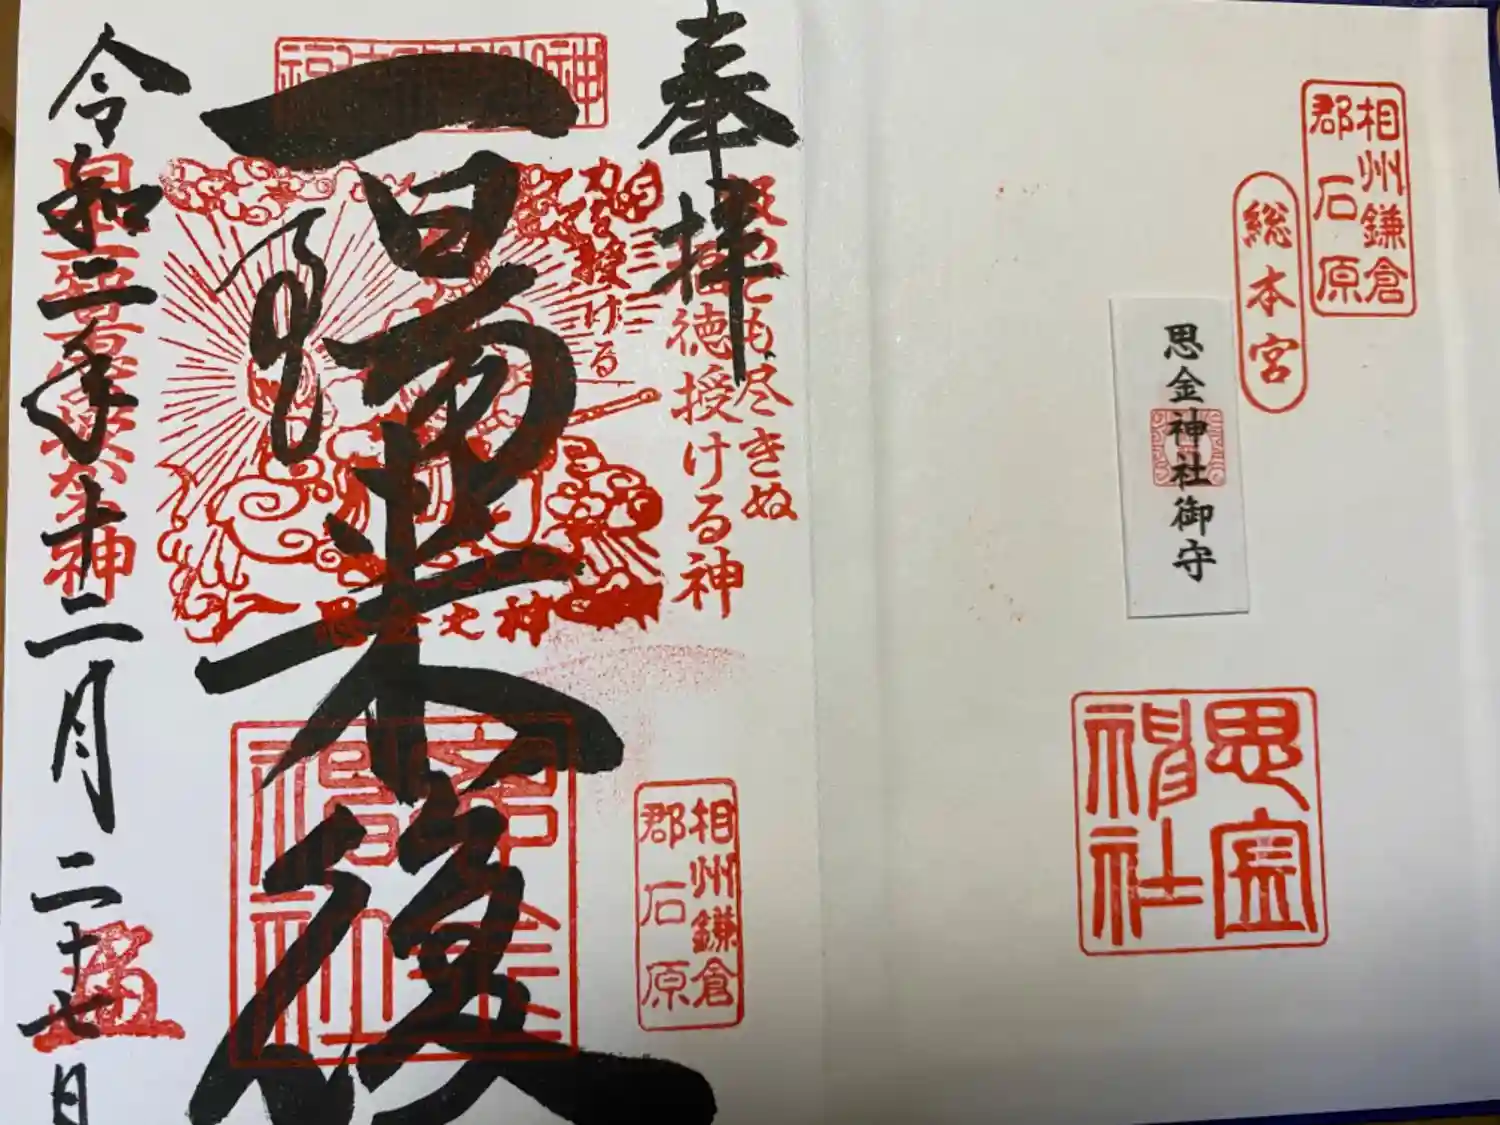 相州鎌倉
郡石原
総本宮
思金神社御守
思金
神社
奉拝
授けても尽きぬ
福徳授ける神
力を授ける
一陽来復
思金之神
相州鎌倉
郡石原
思金
神社
令和二年十二月二十七日